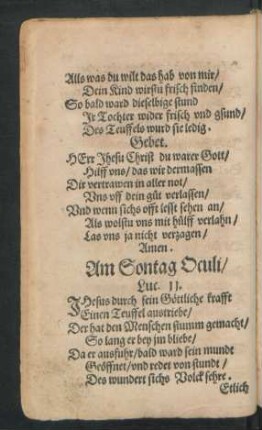 Alls was du wilt das hab von mir/
Dein Kind wirstu frisch finden/
So bald ward dieselbige stund
Jr Tochter wider frisch vnd gsund/
Des Teuffels wurd sie ledig.
Gebet.
HErr Jhesu Christ du warer Gott/
Hülff vns/ das wir dermassen
Dir vertrawen in aller not/
Vns vff dein güt verlassen/
Vnd wenn sichs offt lesst sehen an/
Als wolstu vns mit hülff verlahn/
Las vns ja nicht verzagen/
Amen.
Am Sontag Oculi/
Luc. 11.
JHesus durch sein Göttliche krafft
Einen Teuffel austriebe/
Der hat den Menschen stumm gemacht/
So lang er bey jm bliebe/
Da er ausfuhr/ bald ward sein mundt
Geöffnet/ vnd redet von stundt/
Des wundert sichs Volck sehre.
Etlich